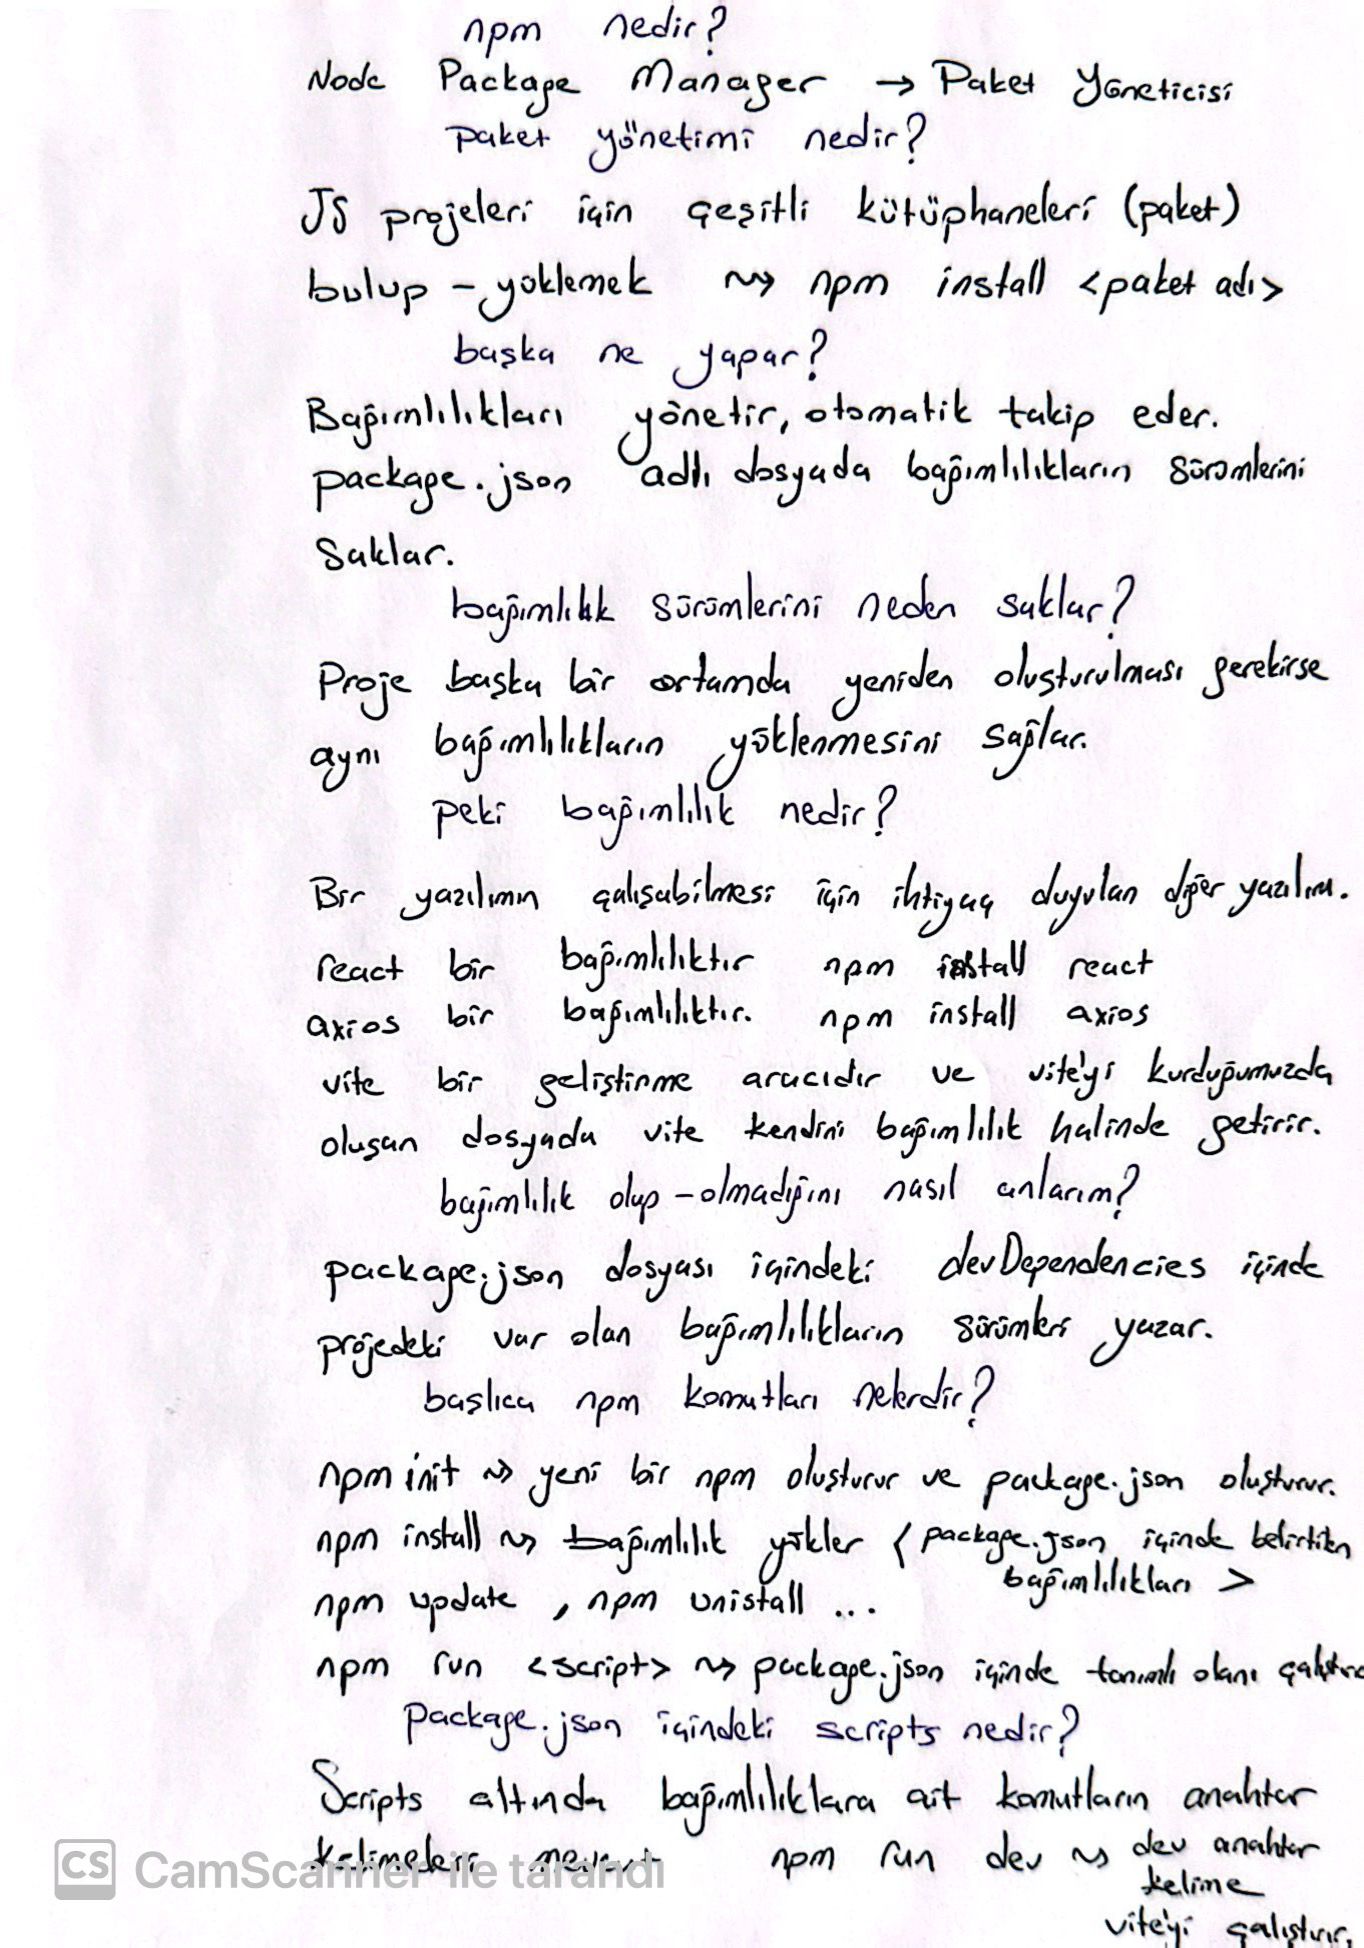 npm nedir?
Node Package Manager → Paket Yöneticisi
Paket yönetimi nedir?
JS projeleri için çeşitli kütüphaneleri (paket)
bulup - yüklemek ⇝ npm install <paket adı>
başka ne yapar?
Bağımlılıkları yönetir, otomatik takip eder.
package.json adlı dosyada bağımlılıkların sürümlerini
saklar.
bağımlılık sürümlerini neden saklar?
Proje başka bir ortamda yeniden oluşturulması gerekirse
aynı bağımlılıkların yüklenmesini sağlar.
peki bağımlılık nedir?
Bir yazılımın çalışabilmesi için ihtiyaç duyulan diğer yazılım.
react bir bağımlılıktır npm install react
axios bir bağımlılıktır. npm install axios
vite bir geliştirme aracıdır ve vite'yi kurduğumuzda
oluşan dosyada vite kendini bağımlılık halinde getirir.
bağımlılık olup - olmadığını nasıl anlarım?
package.json dosyası içindeki devDependencies içinde
projedeki var olan bağımlılıkların sürümleri yazar.
başlıca npm komutları nelerdir?
npm init ⇝ yeni bir npm oluşturur ve package.json oluşturur.
npm install ⇝ bağımlılık yükler < package.json içinde belirtilen
bağımlılıkları >
npm update , npm unistall ...
npm run <script> ⇝ package.json içinde tanımlı olanı çalıştırır
Package.json içindeki scripts nedir?
Scripts altında bağımlılıklara ait komutların anahtar
kelimeleri mevcut npm run dev ⇝ dev anahtar
kelime
vite'yi çalıştırır.
CS CamScanner ile tarandı